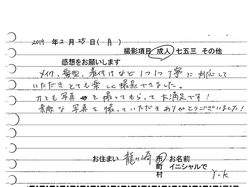 2019年2月25日(月)
撮影項目 成人 七五三 その他
感想をお願いします
メイク、髪型、着付けなど1つ1つ丁寧に対応して
いただきとても楽しく撮影できました。
カとも写真を撮ってもらって大満足です!
素敵な写真を撮っていただきありがとうございました!
お住まい 龍ヶ崎 市 お名前
町 イニシャルで
村 Y.K